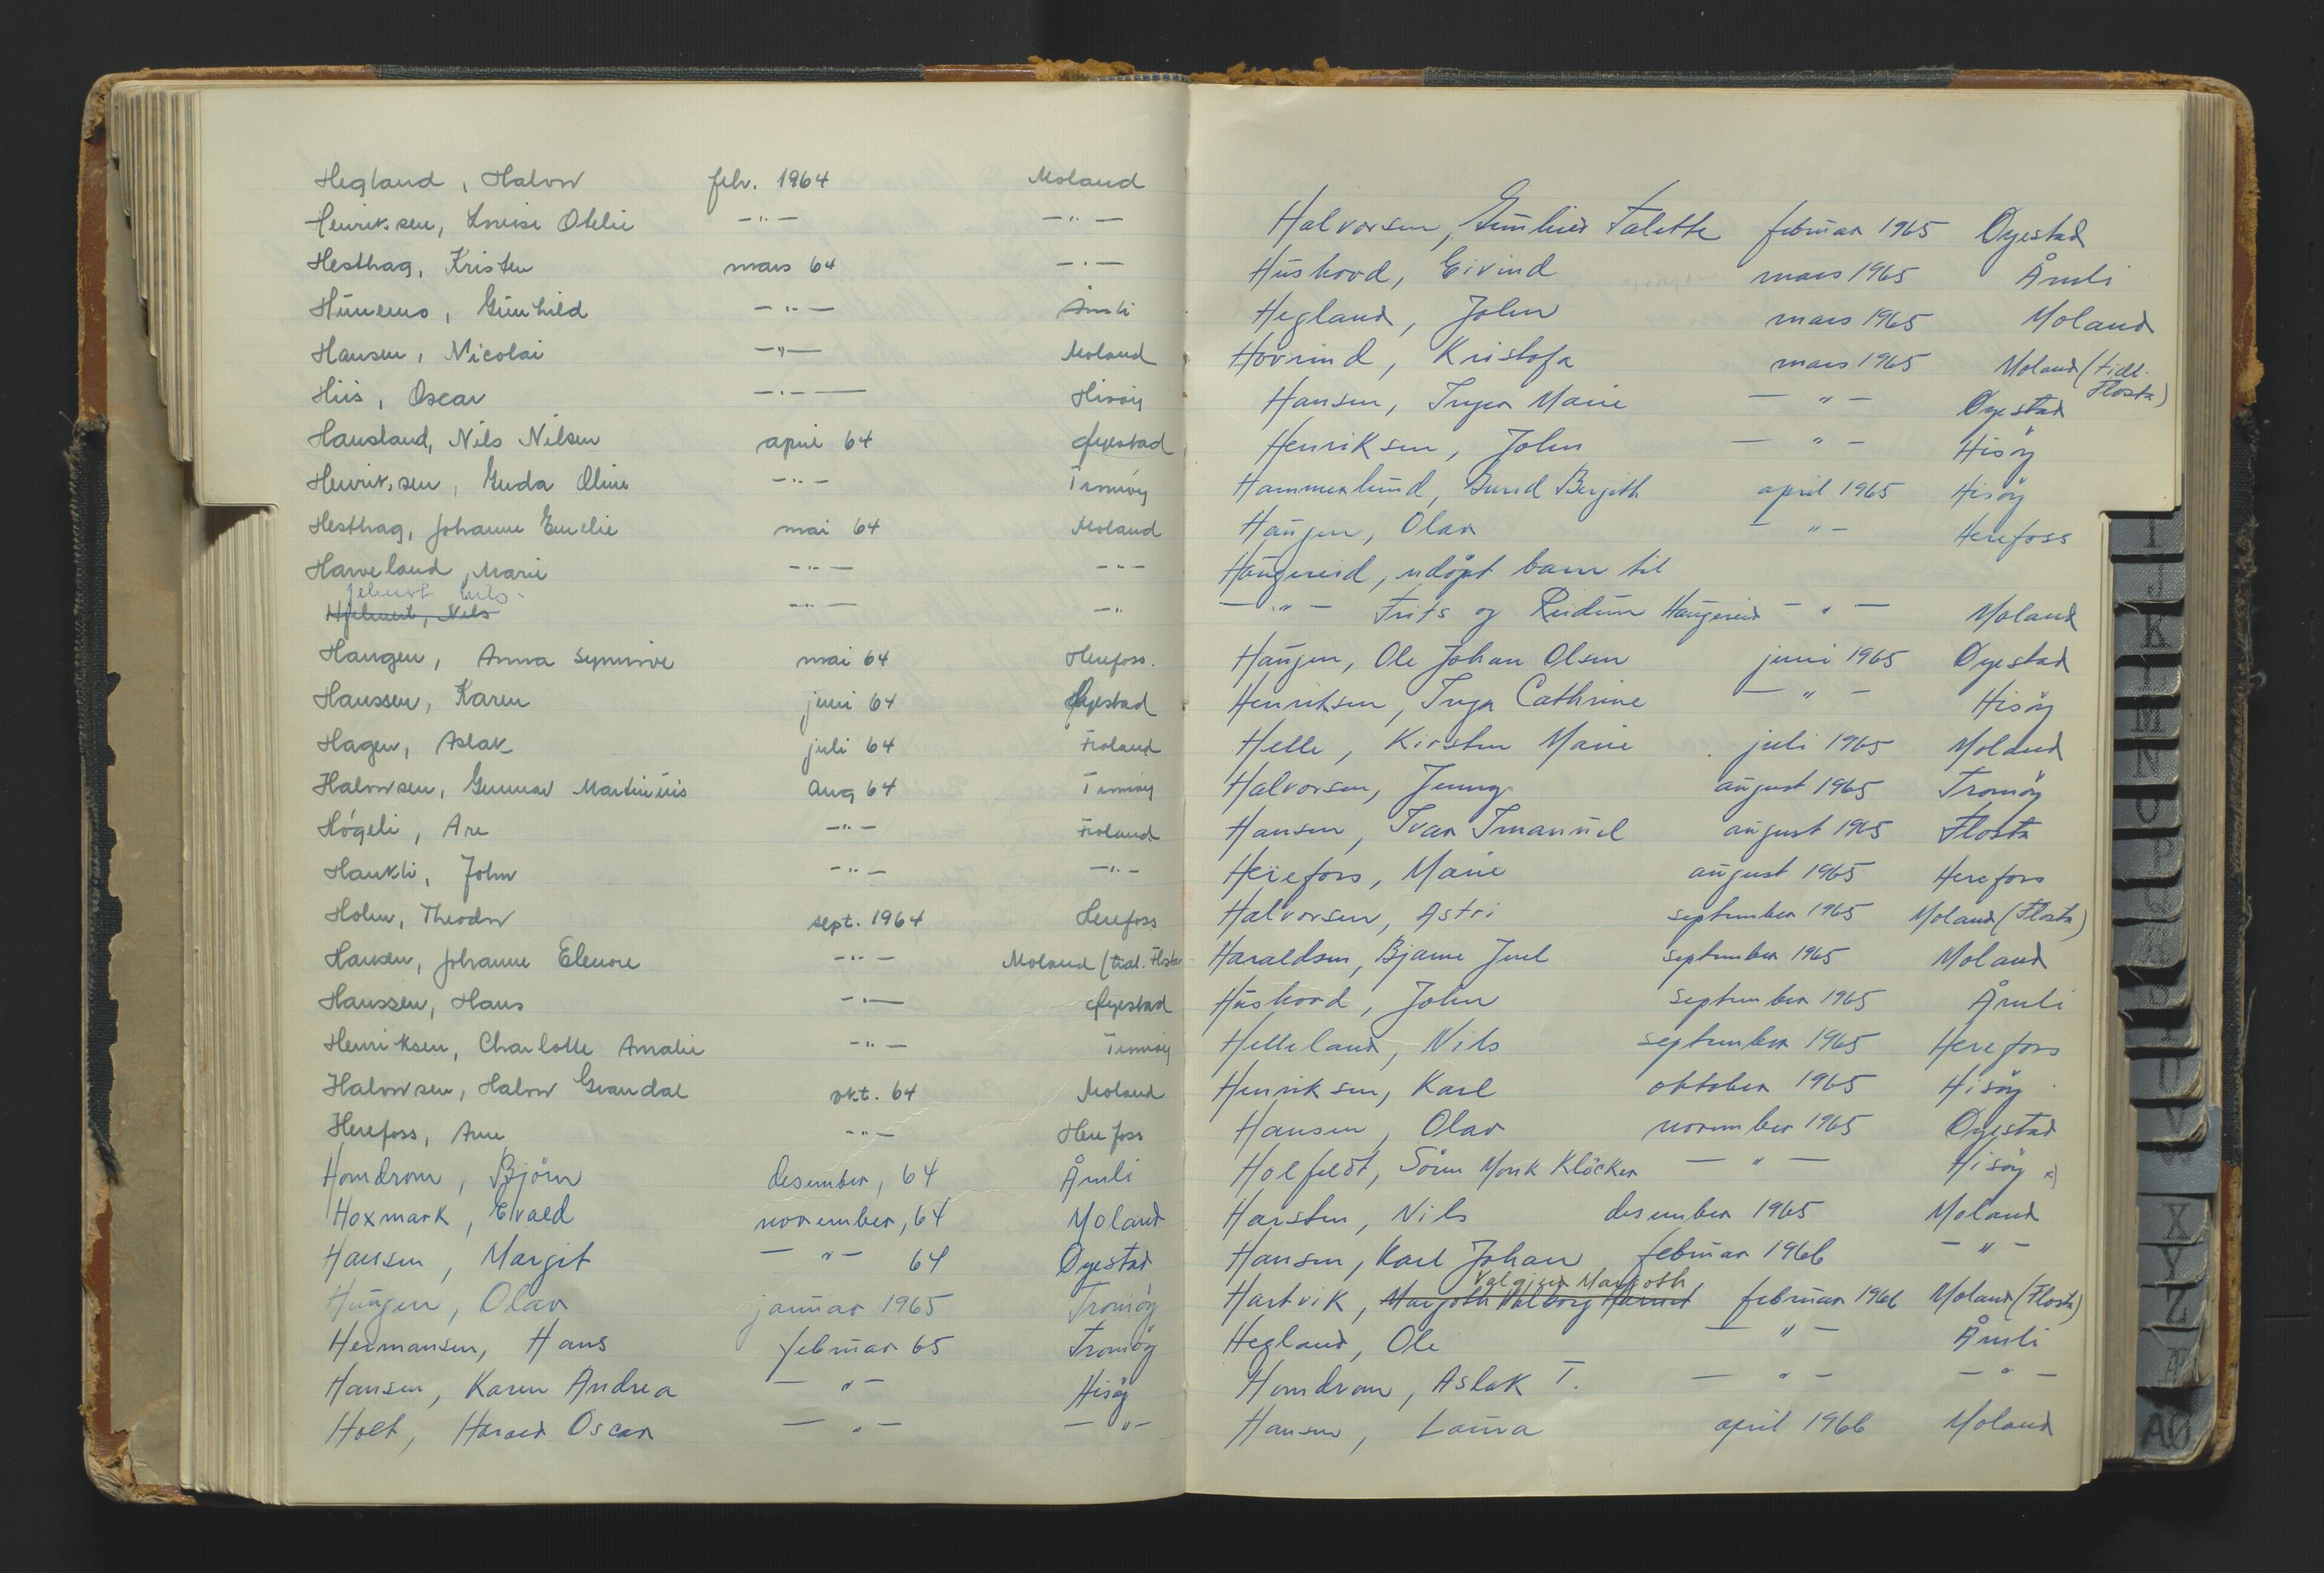 Hegland, Halvor febr. 1964 Moland
Henriksen, Lovise Otelie -"- -"-
Hesthag, Kristen mars 64 -"-
Hunemo, Gunhild -"- Åmli
Hansen, Nicolai -"- Moland
Hiis, Oscar -"- Hisøy
Hausland, Nils Nilsen april 64 Øyestad
Henriksen, Guda Oline -"- Tromøy
Hesthag, Johanne Emelie mai 64 Moland
Harveland, Marie -"- -"-
Jelmert Nils
Hjelmert, Nils -"- -"-
Haugen, Anna Synnøve mai 64 Herefoss.
Hanssen, Karen juni 64 Øyestad
Hagen, Aslak juli 64 Froland
Halvorsen, Gunnar Martinius aug 64 Tromøy
Høgeli, Are -"- Froland
Haukli, John -"- -"-
Holm, Theodor sept. 1964 Herefoss
Hansen, Johanne Elenore -"- Moland (tidl. Flosta
Hanssen, Hans -"- Øyestad
Henriksen, Charlotte Amalie -"- Tromøy
Halvorsen, Halvor Grandal okt. 64 Moland
Herefoss, Arne -"- Herefoss
Homdrom, Björn desember, 64 Åmli
Hoxmark, Evald november, 64 Moland
Hansen, Margit -"- 64 Øyestad
Haugen, Olav januar 1965 Tromöy
Hermansen, Hans februar 65 Tromöy
Hansen, Karen Andrea -"- Hisöy
Holt, Harald Oscar -"- -"-
Halvorsen, Gunhild Talette februar 1965 Øyestad
Huskord, Eivind mars 1965 Åmli
Hegland, John mars 1965 Moland
Hovrind, Kristofa mars 1965 Moland (tidl. Flosta)
Hansen, Inger Marie -"- Øyestad
Henriksen, John -"- Hisöy
Hammerlund, Gurid Bergith april 1965 Hisöy
Haugen, Olav -"- Herefoss
Haugereid, udöpt barn til
-"- Frits og Reidun Haugereid -"- Moland
Haugen, Ole Johan Olsen juni 1965 Øyestad
Henriksen, Inga Cathrine -"- Hisöy
Helle, Kirsten Marie juli 1965 Moland
Halvorsen, Jenny august 1965 Tromöy
Hansen, Ivar Imanuel august 1965 Flosta
Herefoss, Marie august 1965 Herefoss
Halvorsen, Astri september 1965 Moland (Flosta)
Haraldsen, Bjarne Juel september 1965 Moland
Huskord, John september 1965 Åmli
Helleland, Nils september 1965 Herefoss
Henriksen, Karl oktober 1965 Hisöy
Hansen, Olav november 1965 Øyestad
Holfeldt, Sören Monk Klöcker -"- Hisöy x)
Harsten, Nils desember 1965 Moland
Hansen, Karl Johan februar 1966 -"-
Valgjerd Margoth
Hartvik, Margoth Valborg Harriet februar 1966 Moland (Flosta)
Hegland, Ole -"- Åmli
Homdrom, Aslak T. -"- -"-
Hansen, Laura april 1966 Moland
I
J
K
L
M
N
O
P
Q
R
S
T
U
V
X
Y
Z
Æ
AØ